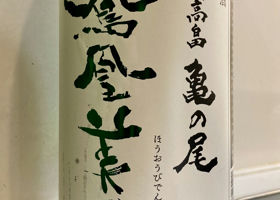 高畠 亀の尾
鳳凰美
ほうおうびでん